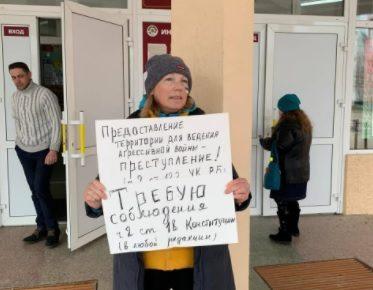 ВХОД
ИН
ПРЕДОСТАВЛЕНИЕ
ТЕРРИТОРИИ ДЛЯ ВЕДЕНИЯ
АГРЕССИВНОЙ ВОЙНЫ -
ПРЕСТУПЛЕНИЕ!
УК Р.Б.
ТРЕБУЮ
соблюдения
ч 2 ст 18 Конституции
(в любой редакции)